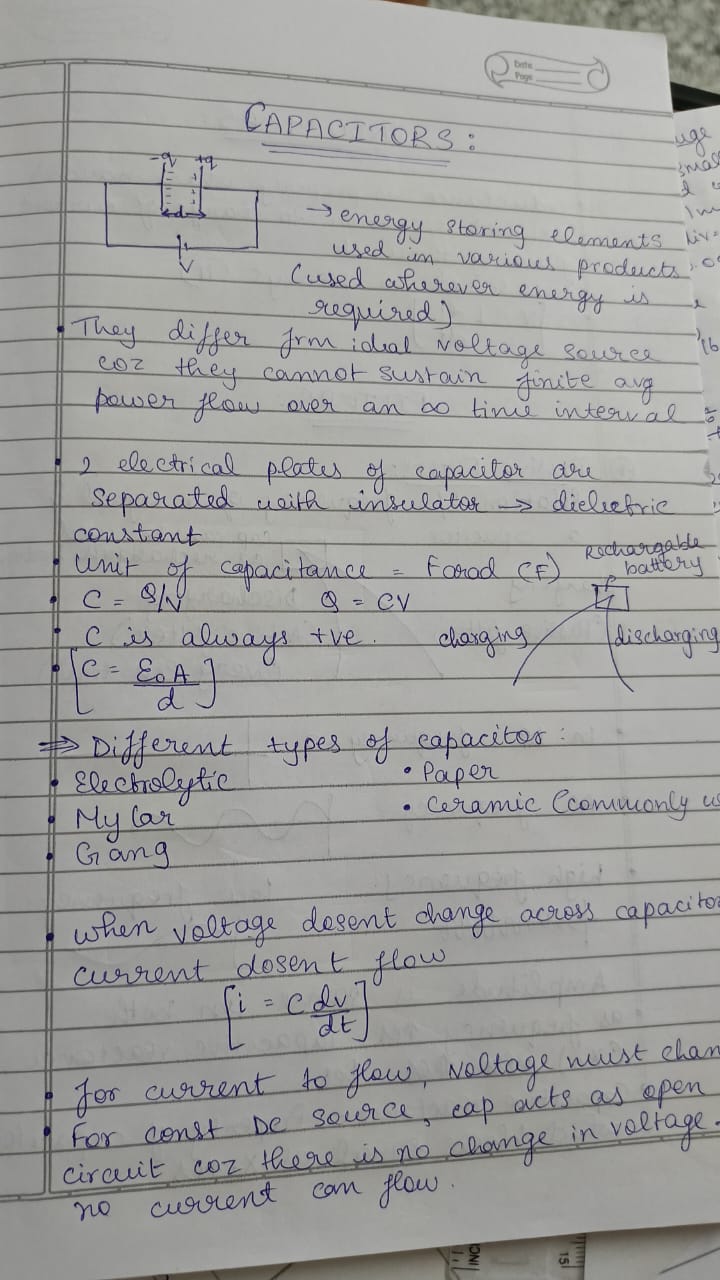 Date
Page
CAPACITORS:
-q +q
d
V
→ energy storing elements
used in various products
(used wherever energy is
required)
• They differ frm ideal voltage source
coz they cannot sustain finite avg
power flow over an ∞ time interval
• 2 electrical plates of capacitor are
separated with insulator → dielectric
constant
• Unit of capacitance = Farad (F)
Rechargable
battery
• C = Q/V Q = CV
• C is always +ve. charging discharging
• [C = ε₀A/d]
⇒ Different types of capacitor:
• Electrolytic • Paper
• Mylar • Ceramic (commonly
• Gang
• when voltage dosent change across capacitor
current dosent flow
[i = C dv/dt]
• for current to flow, voltage must chan
• For const DC source, cap acts as open
circuit coz there is no change in voltage.
no current can flow.
uge
15